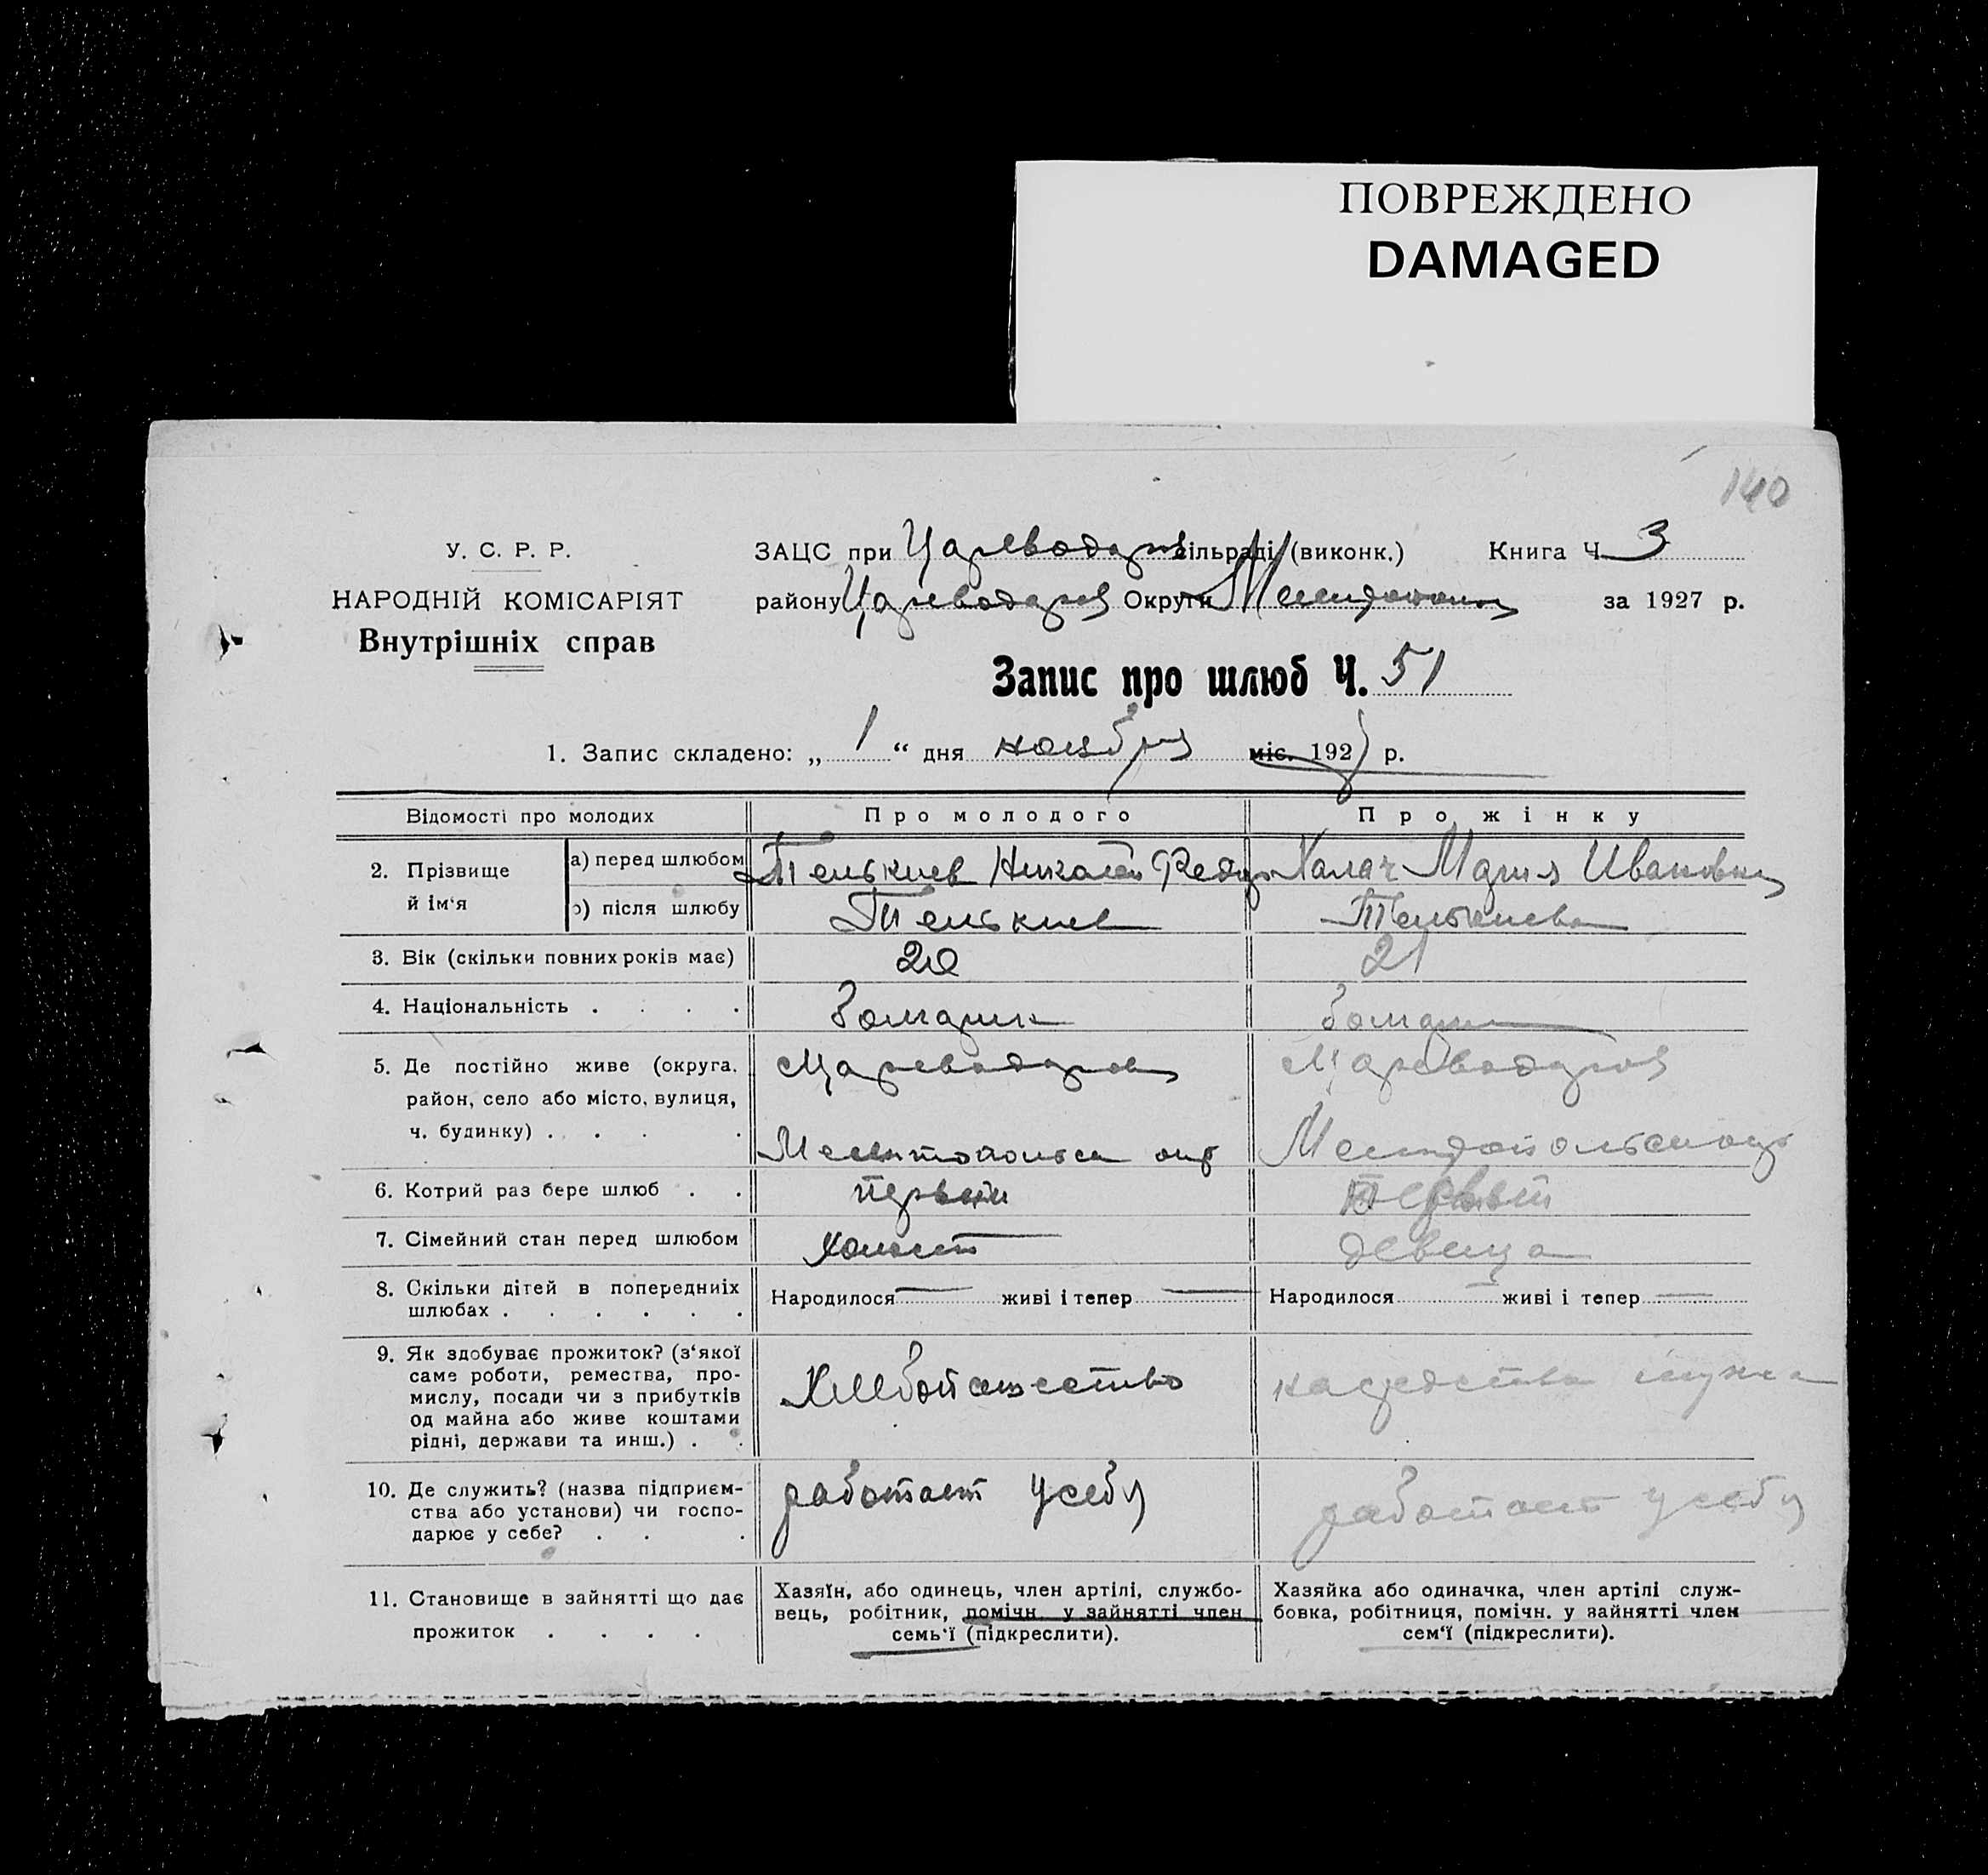 ПОВРЕЖДЕНО
DAMAGED
140
У. С. Р. Р.
НАРОДНІЙ КОМІСАРІЯТ
Внутрішніх справ
ЗАЦС при Цареводаров сільраді (виконк.) Книга Ч. 3
району Цареводаров Округи за 1927 р.
Запис про шлюб Ч. 51
1. Запис складено: „ 1 “ дня ноября міс. 1927 р.
Відомості про молодих Про молодого Про жінку
2. Прізвище й ім‘я
а) перед шлюбом Телькиев Николай Федор Халач Мария Ивановна
б) після шлюбу Телькиев Телькиева
3. Вік (скільки повних років має) 20 21
4. Національність . . . . Болгарин
5. Де постійно живе (округа, район, село або місто, вулиця, ч. будинку) . . . . Цареводаровка Цареводаров
Мелитопольск окр Мелитопольск окр
6. Котрий раз бере шлюб . . первый первый
7. Сімейний стан перед шлюбом Холост девица
8. Скільки дітей в попередниіх шлюбах . . . . . . Народилося — живі і тепер — Народилося — живі і тепер —
9. Як здобуває прожиток? (з‘якої саме роботи, ремества, промислу, посади чи з прибутків од майна або живе коштами рідні, держави та инш.) . . Хлебопашество на средства мужа
10. Де служить? (назва підприємства або установи) чи господарює у себе? . . . работает у себя работает у себя
11. Становище в зайнятті що дає прожиток . . . .
Хазяїн, або одинець, член артілі, службовець, робітник, помічн. у зайнятті член семь‘ї (підкреслити).
Хазяйка або одиначка, член артілі службовка, робітниця, помічн. у зайнятті член сем‘ї (підкреслити).